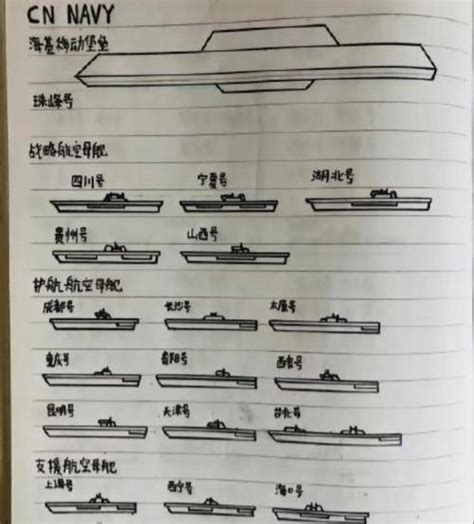 CN NAVY
海基移动堡垒
珠峰号
战略航空母舰
四川号 宁夏号 湖北号
贵州号 山西号
护航航空母舰
成都号 长沙号 太原号
重庆号 贵阳号 西安号
昆明号 天津号 台北号
支援航空母舰
上海号 西宁号 海口号